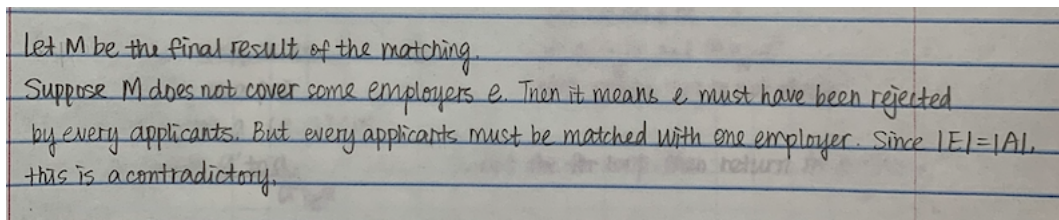 Let M be the final result of the matching.
Suppose M does not cover some employers e. Then it means e must have been rejected
by every applicants. But every applicants must be matched with one employer. Since |E|=|A|,
this is a contradictory.